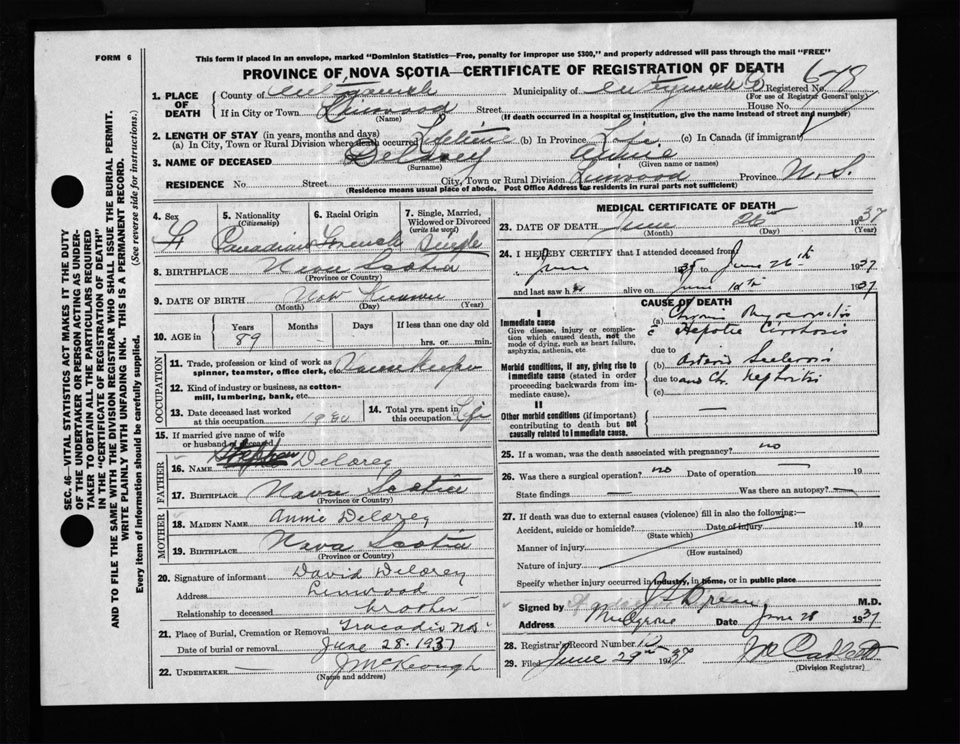 FORM 6
This form if placed in an envelope, marked "Dominion Statistics—Free, penalty for improper use $300," and properly addressed will pass through the mail "FREE"
PROVINCE OF NOVA SCOTIA—CERTIFICATE OF REGISTRATION OF DEATH
1. PLACE OF DEATH
County of Antigonish Municipality of Antigonish Co Registered No. 678
(For use of Registrar General only)
If in City or Town Linwood Street House No.
(Name) (If death occurred in a hospital or institution, give the name instead of street and number)
2. LENGTH OF STAY (in years, months and days)
(a) In City, Town or Rural Division where death occurred Lifetime (b) In Province Life (c) In Canada (if immigrant)
3. NAME OF DECEASED Delorey Annie
(Surname) (Given name or names)
RESIDENCE No. Street City, Town or Rural Division Linwood Province N.S.
(Residence means usual place of abode. Post Office Address for residents in rural parts not sufficient)
4. Sex F
5. Nationality (Citizenship) Canadian
6. Racial Origin French
7. Single, Married, Widowed or Divorced (write the word) Single
8. BIRTHPLACE Nova Scotia
(Province or Country)
9. DATE OF BIRTH Not Known
(Month) (Day) (Year)
10. AGE in Years 89 Months – Days If less than one day old hrs. or min.
OCCUPATION
11. Trade, profession or kind of work as spinner, teamster, office clerk, etc. House Keeper
12. Kind of industry or business, as cotton-mill, lumbering, bank, etc.
13. Date deceased last worked at this occupation
14. Total yrs. spent in this occupation Life
15. If married give name of wife or husband of deceased
FATHER
16. NAME Stephen Delorey
17. BIRTHPLACE Nova Scotia
(Province or Country)
MOTHER
18. MAIDEN NAME Annie Delorey
19. BIRTHPLACE Nova Scotia
(Province or Country)
20. Signature of informant David Delorey
Address Linwood
Relationship to deceased brother
21. Place of Burial, Cremation or Removal Tracadie N.S.
Date of burial or removal June 28 1937
22. UNDERTAKER J McKeough
(Name and address)
MEDICAL CERTIFICATE OF DEATH
23. DATE OF DEATH June 26 1937
(Month) (Day) (Year)
24. I HEREBY CERTIFY that I attended deceased from
June to June 26th 1937
and last saw h alive on June 1937
CAUSE OF DEATH
I
Immediate cause
Give disease, injury or complication which caused death, not the mode of dying, such as heart failure, asphyxia, asthenia, etc
(a) Chronic Myocarditis
c Hepatic Cirrhosis
due to
Morbid conditions, if any, giving rise to immediate cause (stated in order proceeding backwards from immediate cause).
(b) Arterio Sclerosis
due to and Ch. Nephritis
(c)
II
Other morbid conditions (if important) contributing to death but not causally related to immediate cause.
25. If a woman, was the death associated with pregnancy? no
26. Was there a surgical operation? no Date of operation 19
State findings Was there an autopsy?
27. If death was due to external causes (violence) fill in also the following:—
Accident, suicide or homicide? Date of injury 19
(State which)
Manner of injury
(How sustained)
Nature of injury
Specify whether injury occurred in industry, in home, or in public place
Signed by M.D.
Address Mulgrave Date June 28 1937
28. Registrar's Record Number
29. Filed June 29th 1937
(Division Registrar)
SEC. 46—VITAL STATISTICS ACT MAKES IT THE DUTY OF THE UNDERTAKER OR PERSON ACTING AS UNDERTAKER TO OBTAIN ALL THE PARTICULARS REQUIRED IN THE "CERTIFICATE OF REGISTRATION OF DEATH" AND TO FILE THE SAME WITH THE DIVISION REGISTRAR WHO SHALL ISSUE THE BURIAL PERMIT.
WRITE PLAINLY WITH UNFADING INK. THIS IS A PERMANENT RECORD.
Every item of information should be carefully supplied. (See reverse side for instructions.)